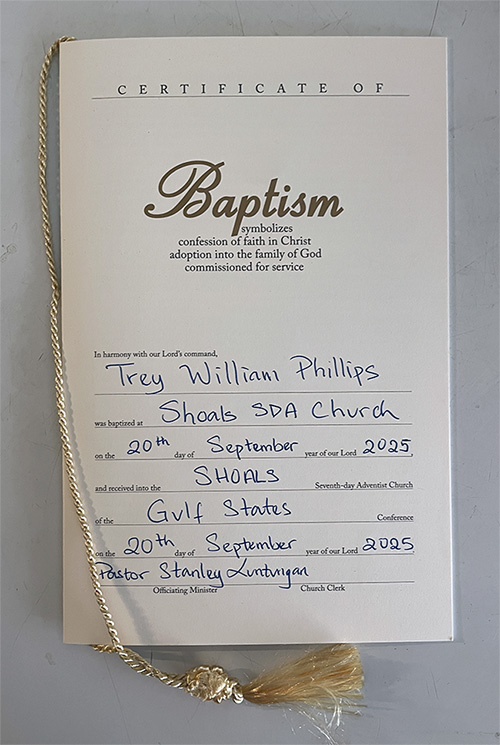 CERTIFICATE OF
Baptism
symbolizes
confession of faith in Christ
adoption into the family of God
commissioned for service
In harmony with our Lord's command,
Trey William Phillips
was baptized at Shoals SDA Church
on the 20th day of September year of our Lord 2025,
and received into the SHOALS Seventh-day Adventist Church
of the Gulf States Conference
on the 20th day of September year of our Lord 2025
Pastor Stanley Luntungan
Officiating Minister Church Clerk